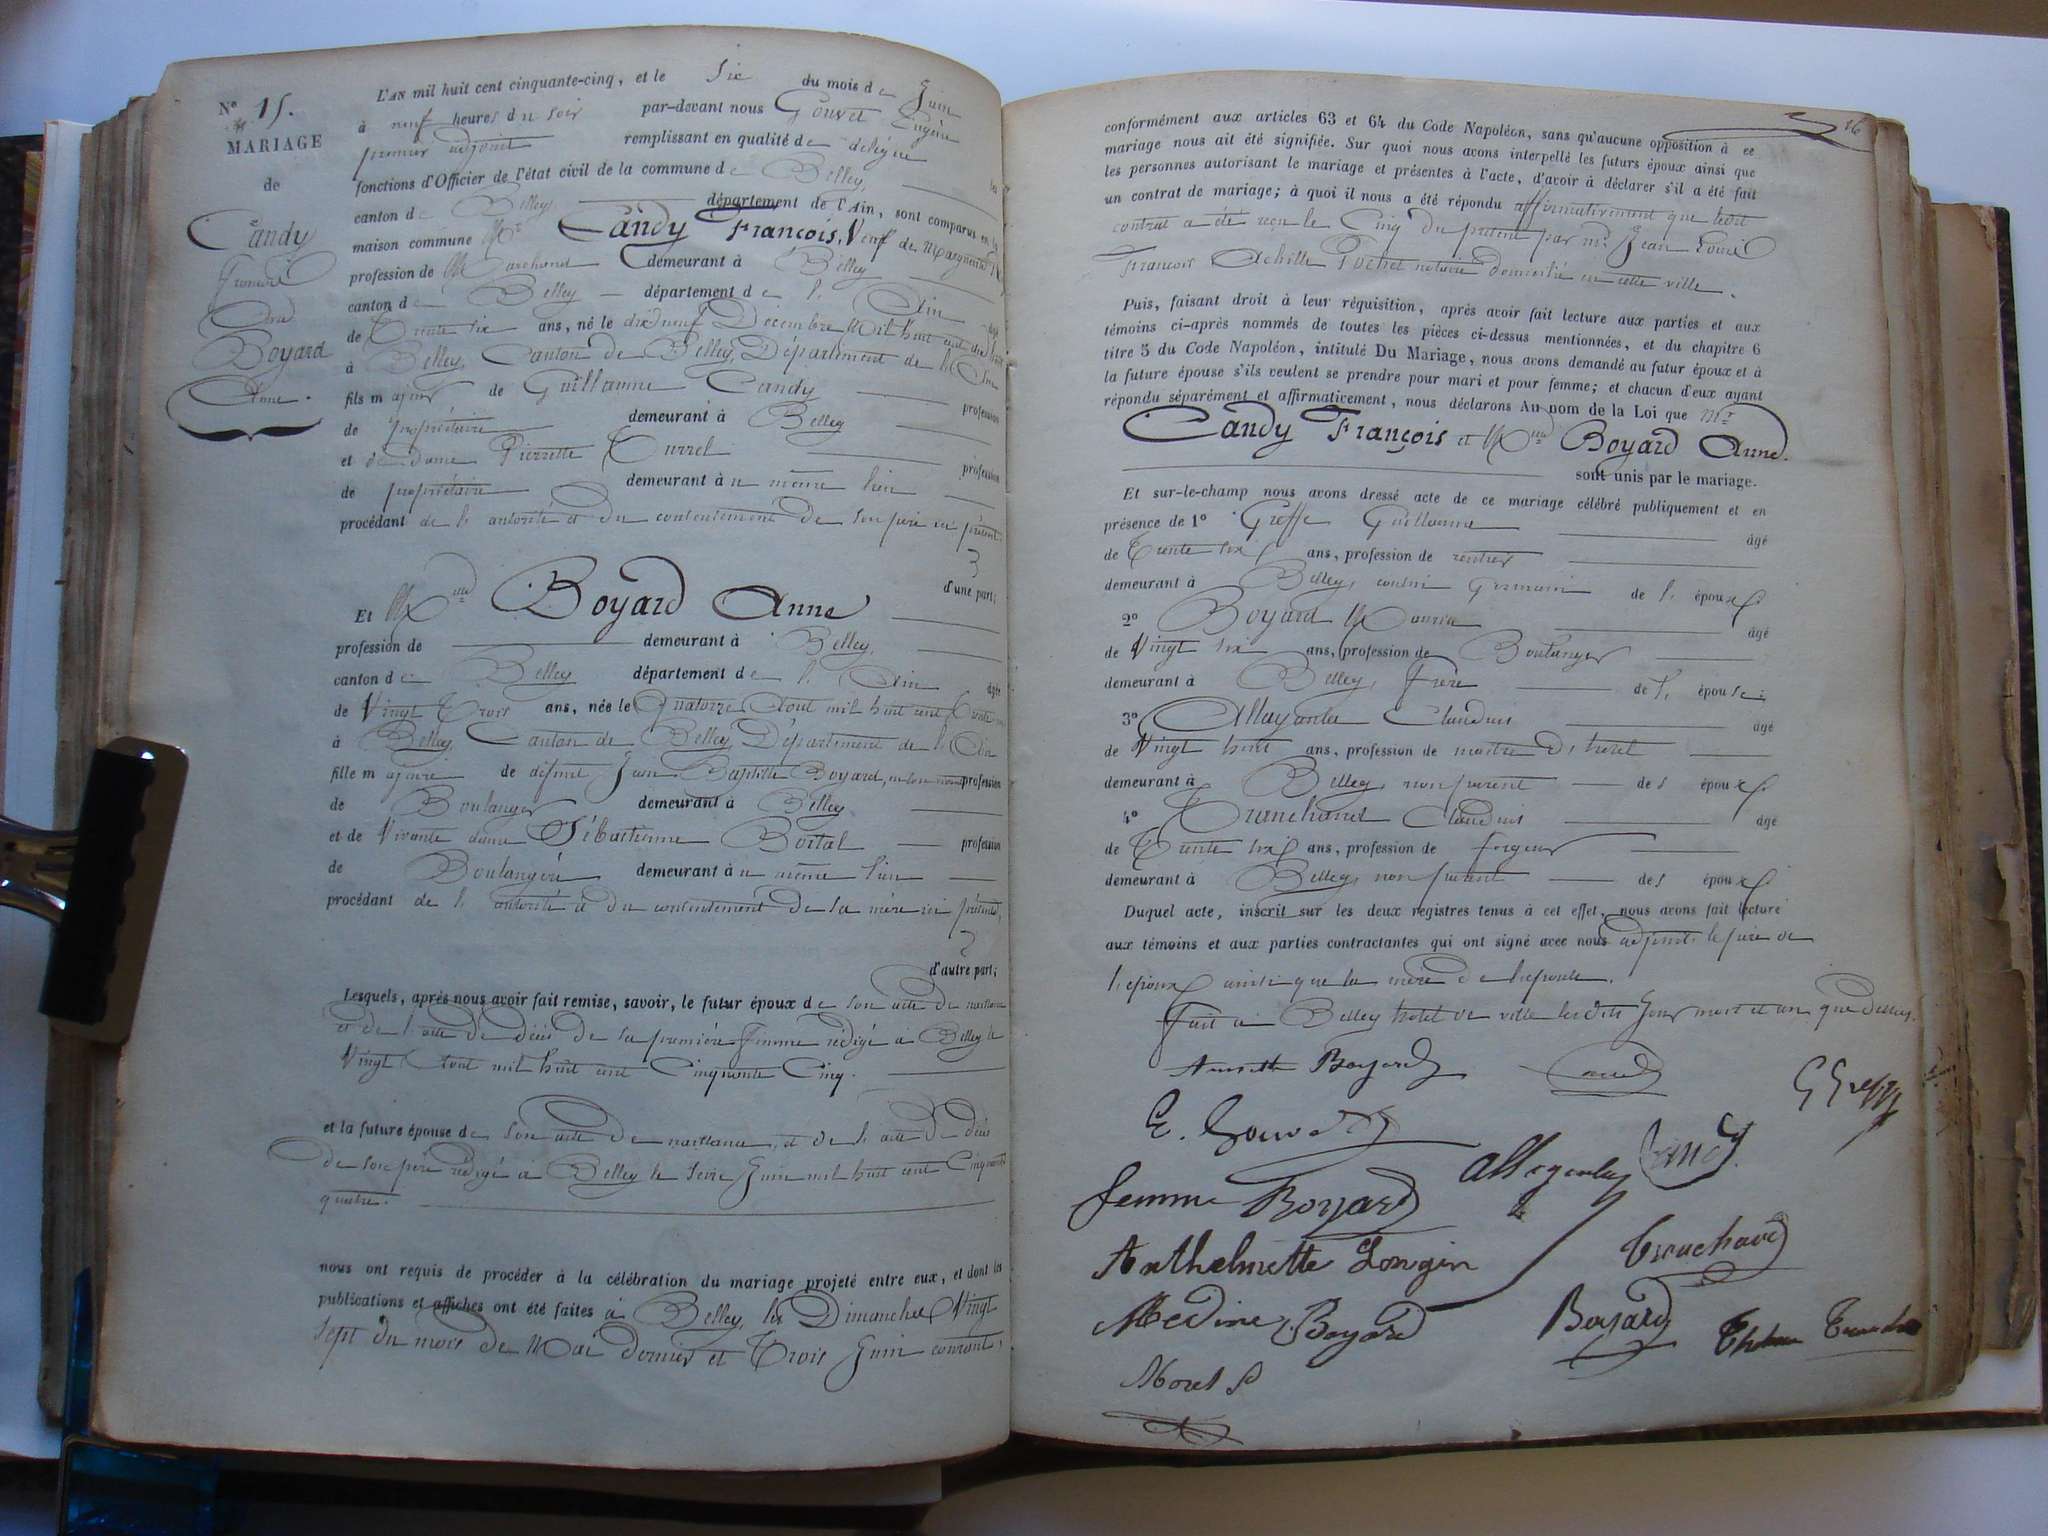 N° 15.
MARIAGE
de
Candy
François
Boyard
Anne.
L'AN mil huit cent cinquante-cinq, et le six du mois de Juin
à neuf heures du soir par-devant nous Gouvet Eugène
premier adjoint remplissant en qualité de délégué les
fonctions d'Officier de l'état civil de la commune de Belley,
canton de Belley département de l'Ain, sont comparus en la
maison commune Mr Candy François, Veuf de Marguerite
profession de Marchand demeurant à Belley
canton de Belley département de l'Ain âgé
de Trente six ans, né le dix neuf Décembre mil huit cent dix huit
à Belley, Canton de Belley, Département de l'Ain
fils majeur de Guillaume Candy profession
de propriétaire demeurant à Belley
et de dame Pierrette Currel profession
de propriétaire demeurant au même lieu
procédant de l'autorité et du consentement de son père ici présent.
d'une part;
Et Melle Boyard Anne
profession de demeurant à Belley,
canton de Belley département de l'Ain âgée
de Vingt Trois ans, née le Quatorze Aout mil huit cent Trente un
à Belley, Canton de Belley, Département de l'Ain
fille majeure de défunt Jean Baptiste Boyard, profession
de Boulanger demeurant à Belley
et de Vivante dame Sébastienne Bortal profession
de Boulangère demeurant au même lieu
procédant de l'autorité et du consentement de sa mère ici présente,
d'autre part;
Lesquels, après nous avoir fait remise, savoir, le futur époux de son acte de naissance
et de l'acte de décès de sa première femme rédigé à Belley le
Vingt Aout mil huit cent Cinquante Cinq.
et la future épouse de son acte de naissance, et de l'acte de décès
de son père rédigé à Belley le Juin mil huit cent Cinquante
quatre.
nous ont requis de procéder à la célébration du mariage projeté entre eux, et dont les
publications et affiches ont été faites à Belley, les Dimanches Vingt
sept du mois de Mai dernier et Trois Juin courant,
16
conformément aux articles 63 et 64 du Code Napoléon, sans qu'aucune opposition à ce
mariage nous ait été signifiée. Sur quoi nous avons interpellé les futurs époux ainsi que
les personnes autorisant le mariage et présentes à l'acte, d'avoir à déclarer s'il a été fait
un contrat de mariage; à quoi il nous a été répondu affirmativement que ledit
contrat a été reçu le Cinq du présent par me Jean Louis
François Achille Pochet notaire domicilié en cette ville.
Puis, faisant droit à leur réquisition, après avoir fait lecture aux parties et aux
témoins ci-après nommés de toutes les pièces ci-dessus mentionnées, et du chapitre 6
titre 5 du Code Napoléon, intitulé Du Mariage, nous avons demandé au futur époux et à
la future épouse s'ils veulent se prendre pour mari et pour femme; et chacun d'eux ayant
répondu séparément et affirmaticement, nous déclarons Au nom de la Loi que Mr
Candy François et Melle Boyard Anne.
sont unis par le mariage.
Et sur-le-champ nous avons dressé acte de ce mariage célébré publiquement et en
présence de 1° Greffe Guillaume âgé
de Trente six ans, profession de rentier
demeurant à Belley, cousin Germain de l'époux.
2° Boyard âgé
de Vingt six ans, profession de Boulanger
demeurant à Belley, Frère de l'épouse;
3° Claudius âgé
de Vingt huit ans, profession de maitre d'hotel
demeurant à Belley, non parent des époux.
4° Claudius âgé
de Trente six ans, profession de forgeur
demeurant à Belley, non parent des époux
Duquel acte, inscrit sur les deux registres tenus à cet effet, nous avons fait lecture
aux témoins et aux parties contractantes qui ont signé avec nous adjoint le père de
l'époux ainsi que la mère de l'épouse.
Fait à Belley hotel de ville lesdits Jour mois et an que dessus.
Annette Boyard Candy
G Greffe
E. Gouvet
Candy
femme Boyard
Anthelmette Longin
Médine Boyard
Boyard
Morel